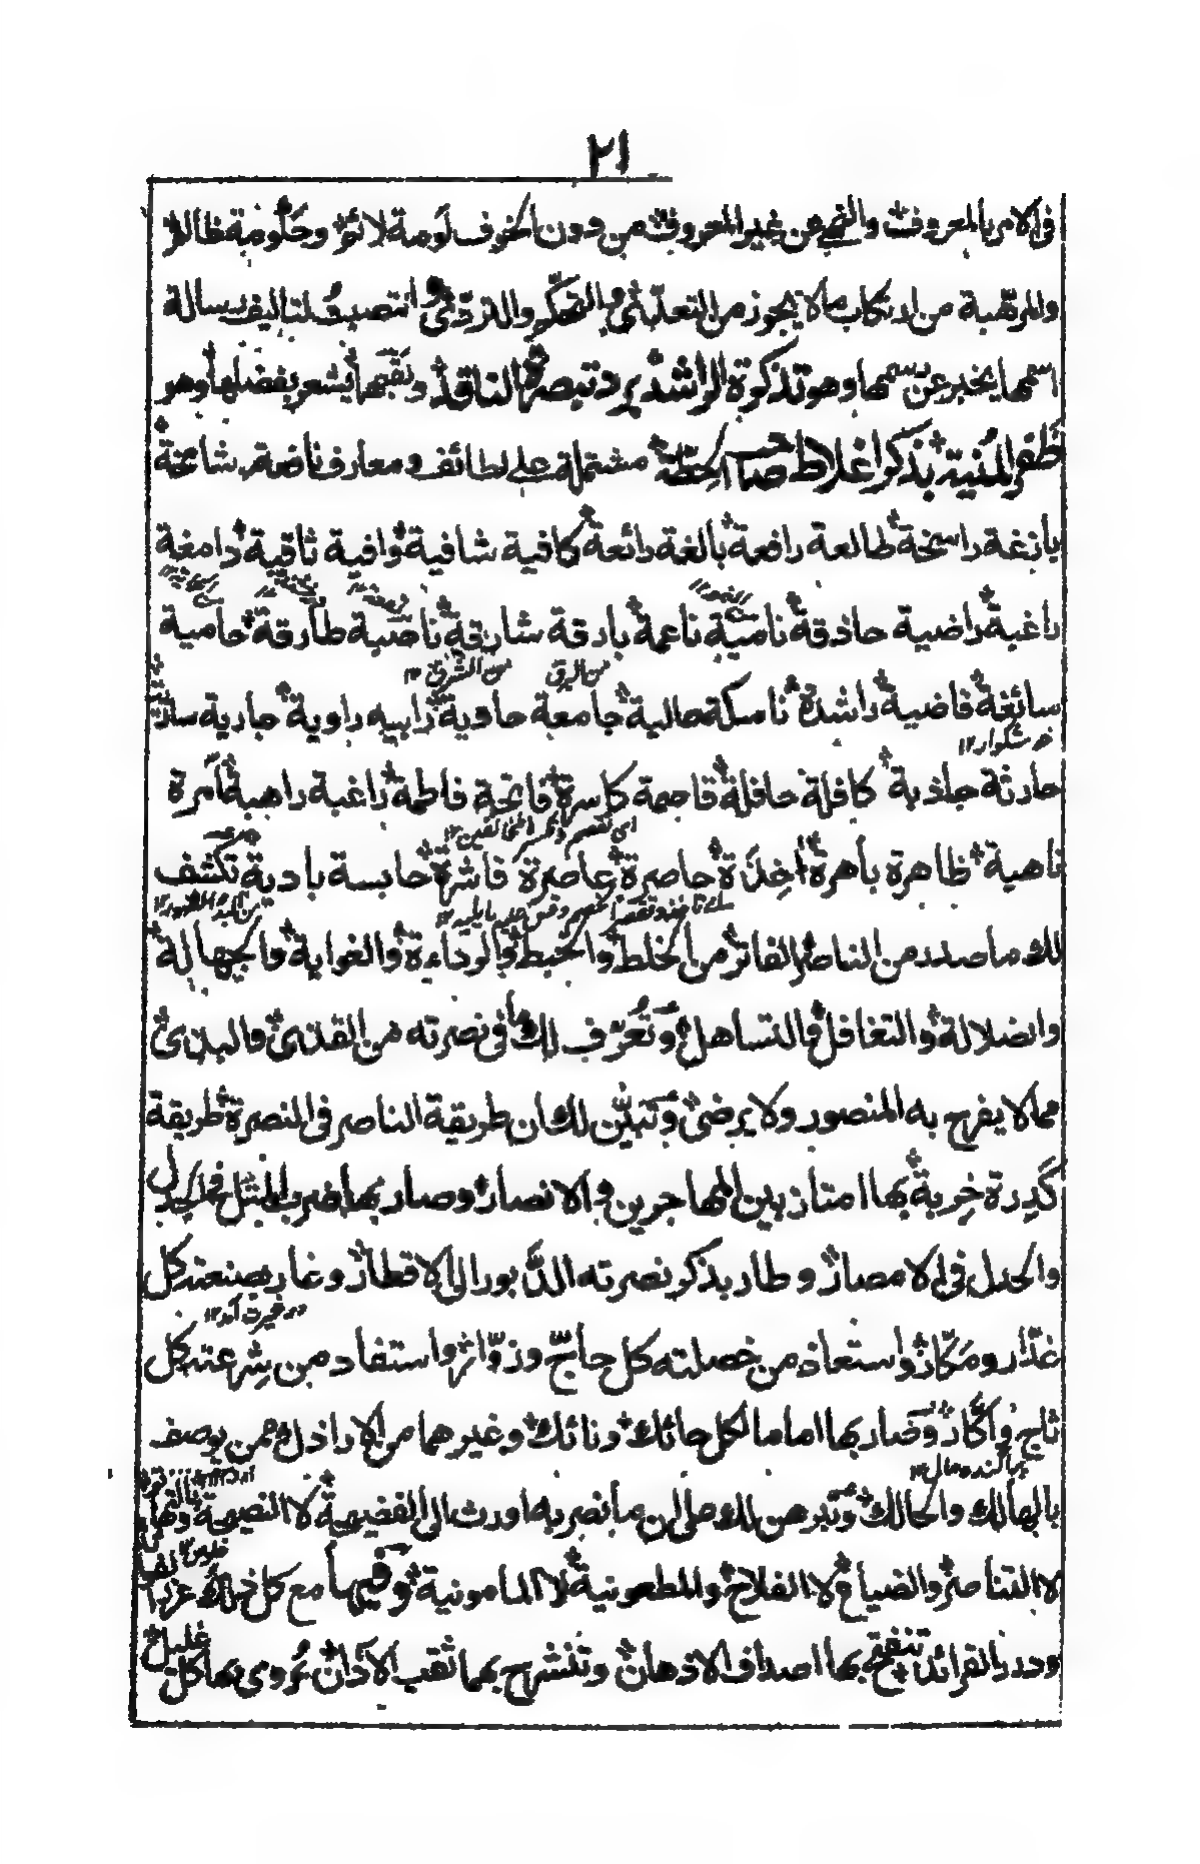 ٢١
فى الامر بالمعروف والنهى عن غير المعروف من دون الخوف لومة لائم وحكومة ظالم
والمرهبة من ارتكاب ما لا يجوز من التعدى والتفكر والتردى وانتصبت لتاليف رسالة
اسمها يخبر عن رسمها وهو تذكرة الراشد برد تبصرة الناقد ولقبها يشعر بفضلها وهو
ظفر المنية بذكر اغلاط صاحب الحطة مشتملة على لطائف ومعارف نافعة شامخة
بازغة راسخة طالعة رافعة بالغة رائعة كافية شافية وافية ثاقبة دامغة
راغبة راضية حاذقة نامية ناعمة بارقة شارقة ناصبة طارقة حامية
من البرق من الشرق ١٢
سائغة قاضية راشدة ناسكة حالية جامعة حاوية رابيه راوية جارية سارية
خوشگوار ١٢
حارثة جاذبة كافلة حافلة قاصمة كاسرة فاتحة فاطمة راغبة راهبة آمرة
ناهية ظاهرة باهرة اخذة حاصرة عاصرة قاشرة حابسة بادية تكشف
لك ما صدر من الناصر الفاتر من الخلط والخبط والرداءة والغواية والجهالة
والضلالة والتغافل والتساهل وتعرف لك ما فى نصرته من القذى والبذى
مما لا يفرح به المنصور ولا يرضى وتبين لك ان طريقة الناصر فى النصرة طريقة
كدرة خربة بها امتاز بين المهاجرين والانصار وصار بها ضرب المثل فى الجدل
والحدل فى الامصار وطار بذكر نصرته الدبور الى الاقطار وغار بصنعته كل
در غيرت آمد ١٢
غدار ومكار واستعاذ من خصلته كل حاج وزوار واستفاد من شرعته كل
ثاج واكار وصار بها اماما لكل حائك ونائك وغيرهما من الاراذل ممن يوصف
پراگنده حال ١٢
بالهالك والحالك وتبرهن لك على ان ما نصر به اورث الى الفضيحة لا النصيحة
لا التناصر والضياع لا الفلاح والمطعونية لا المامونية وفيها مع كل ذلك غرر
ودرر الفرائد تنفتح بها اصداف الاذهان وتنشرح بها ثقب الاذان يروى بها كل غليل